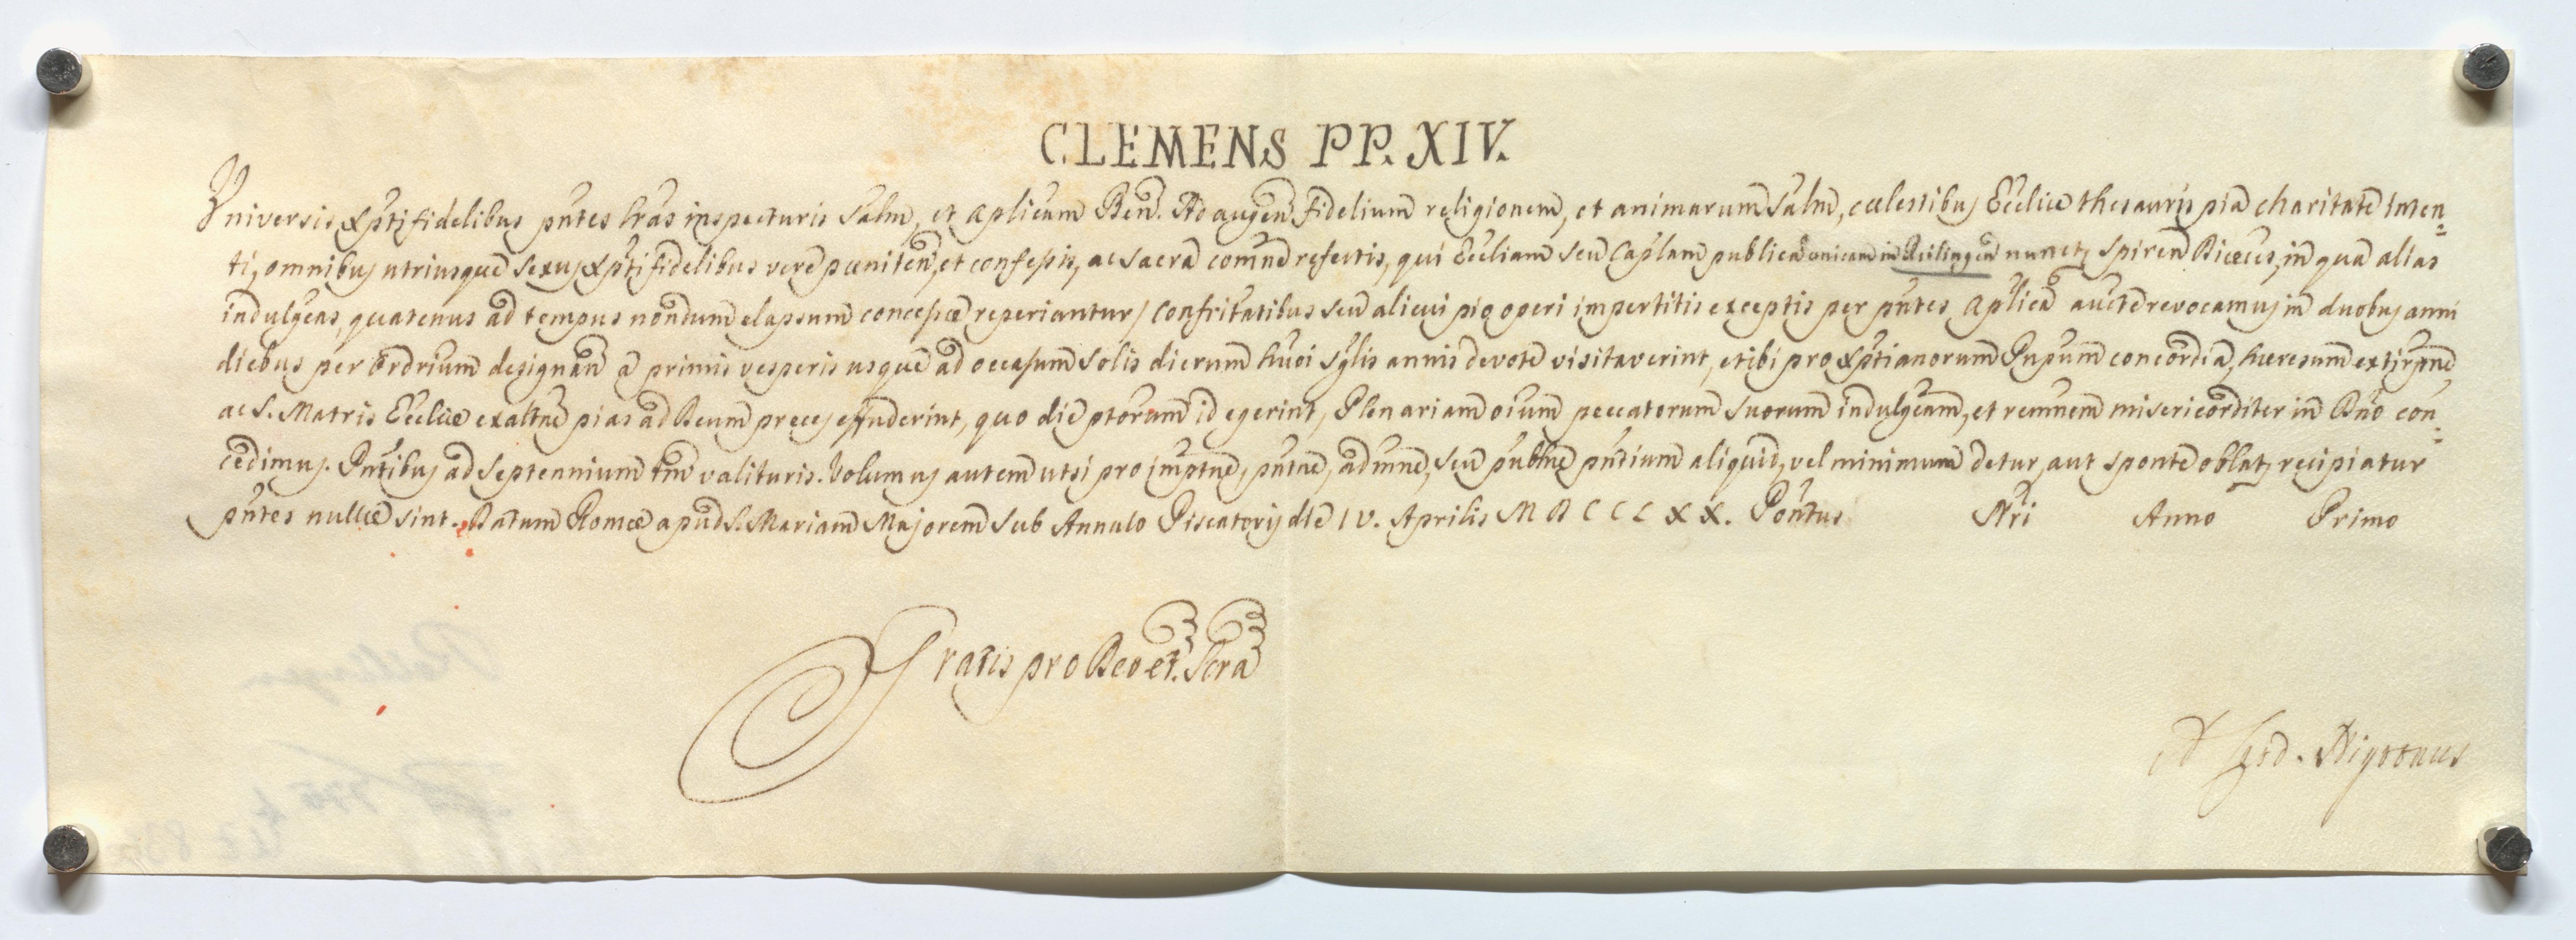 CLEMENS PP. XIV.
Vniversis Xpti fidelibus pntes lras inspecturis Salm, et aplicam Ben. Ad augen fidelium religionem, et animarum Salm, cœlestibus Ecclie thesauris pia charitate inten=
ti, omnibus utriusque sexus Xpti fidelibus vere pœniten, et confessis, ac sacra comne refectis, qui Eccliam seu Caplam publicam unicam in Reilingen nuncup Spiren Diœcis, in qua alias
indulgeas, quatenus ad tempus nondum elapsum concessæ reperiantur, Confritatibus seu alicui pio operi impertitis exceptis per pntes aplica aucte revocamus in duobus anni
diebus per ordrium designan a primis vesperis usque ad occasum solis dierum huoi sglis annis devote visitaverint, et ibi pro Xptianorum Pnpum concordia, hæresum extirpne
ac S. Matris Ecclie exaltne pias ad Deum preces effuderint, quo die ptorum id egerint, Plenariam oium peccatorum suorum indulgeam, et remnem misericorditer in Dno con=
cedimus. Pntibus ad Septennium tm valituris. Volumus autem ut si pro imptne, pntne, admne, seu publne pntium aliquid, vel minimum detur, aut sponte oblat recipiatur
pntes nullæ sint. Datum Romæ apud S. Mariam Majorem sub Annulo Piscatoris die IV. Aprilis MDCCLXX. Pontus Nri Anno Primo
Gratis pro Deo et Scra
A Card. Nigronus